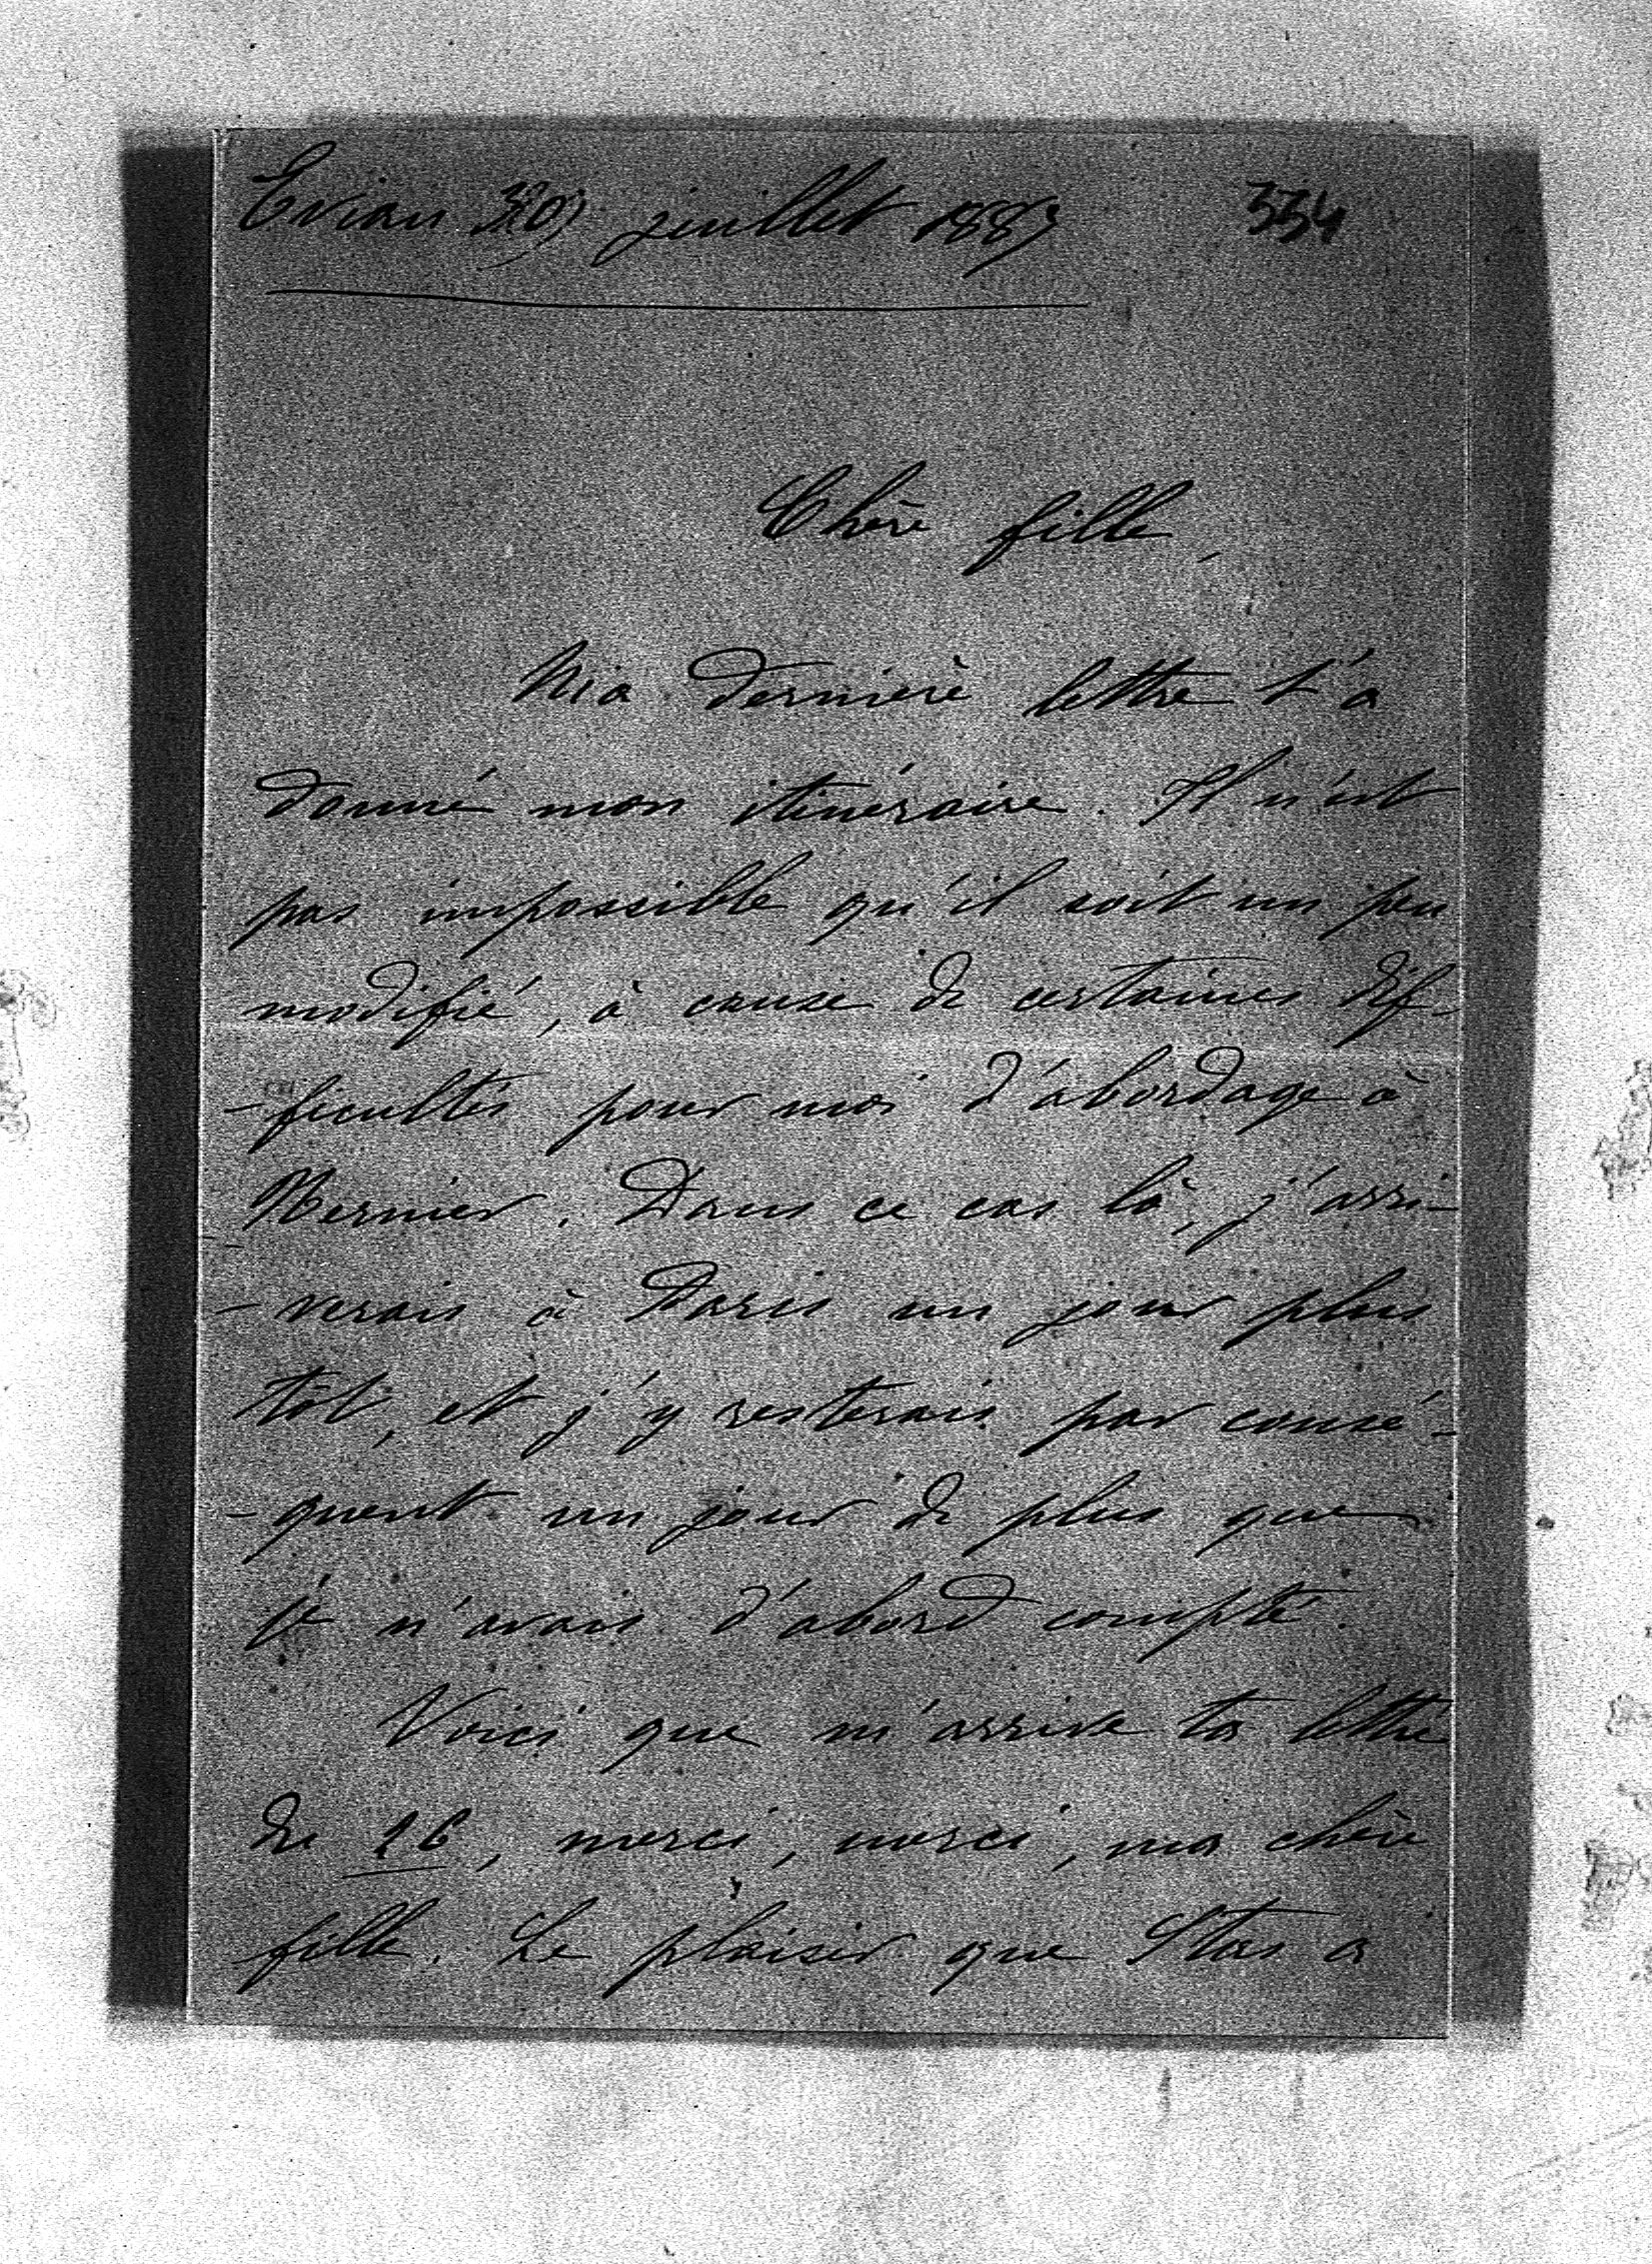 Evian 30 juillet 1887 334
Chère fille,
Ma dernière lettre t'a
donné mon itinéraire. Il n'est
pas impossible qu'il soit un peu
modifié, à cause de certaines dif-
-ficultés pour moi d'abordage à
Nernier. Dans ce cas là, j'arri-
-verais à Paris un jour plus
tôt, et j'y resterais par consé-
-quent un jour de plus que
je n'avais d'abord compté.
Voici que m'arrive ta lettre
de 26, merci, merci, ma chère
fille. Le plaisir que Stas a